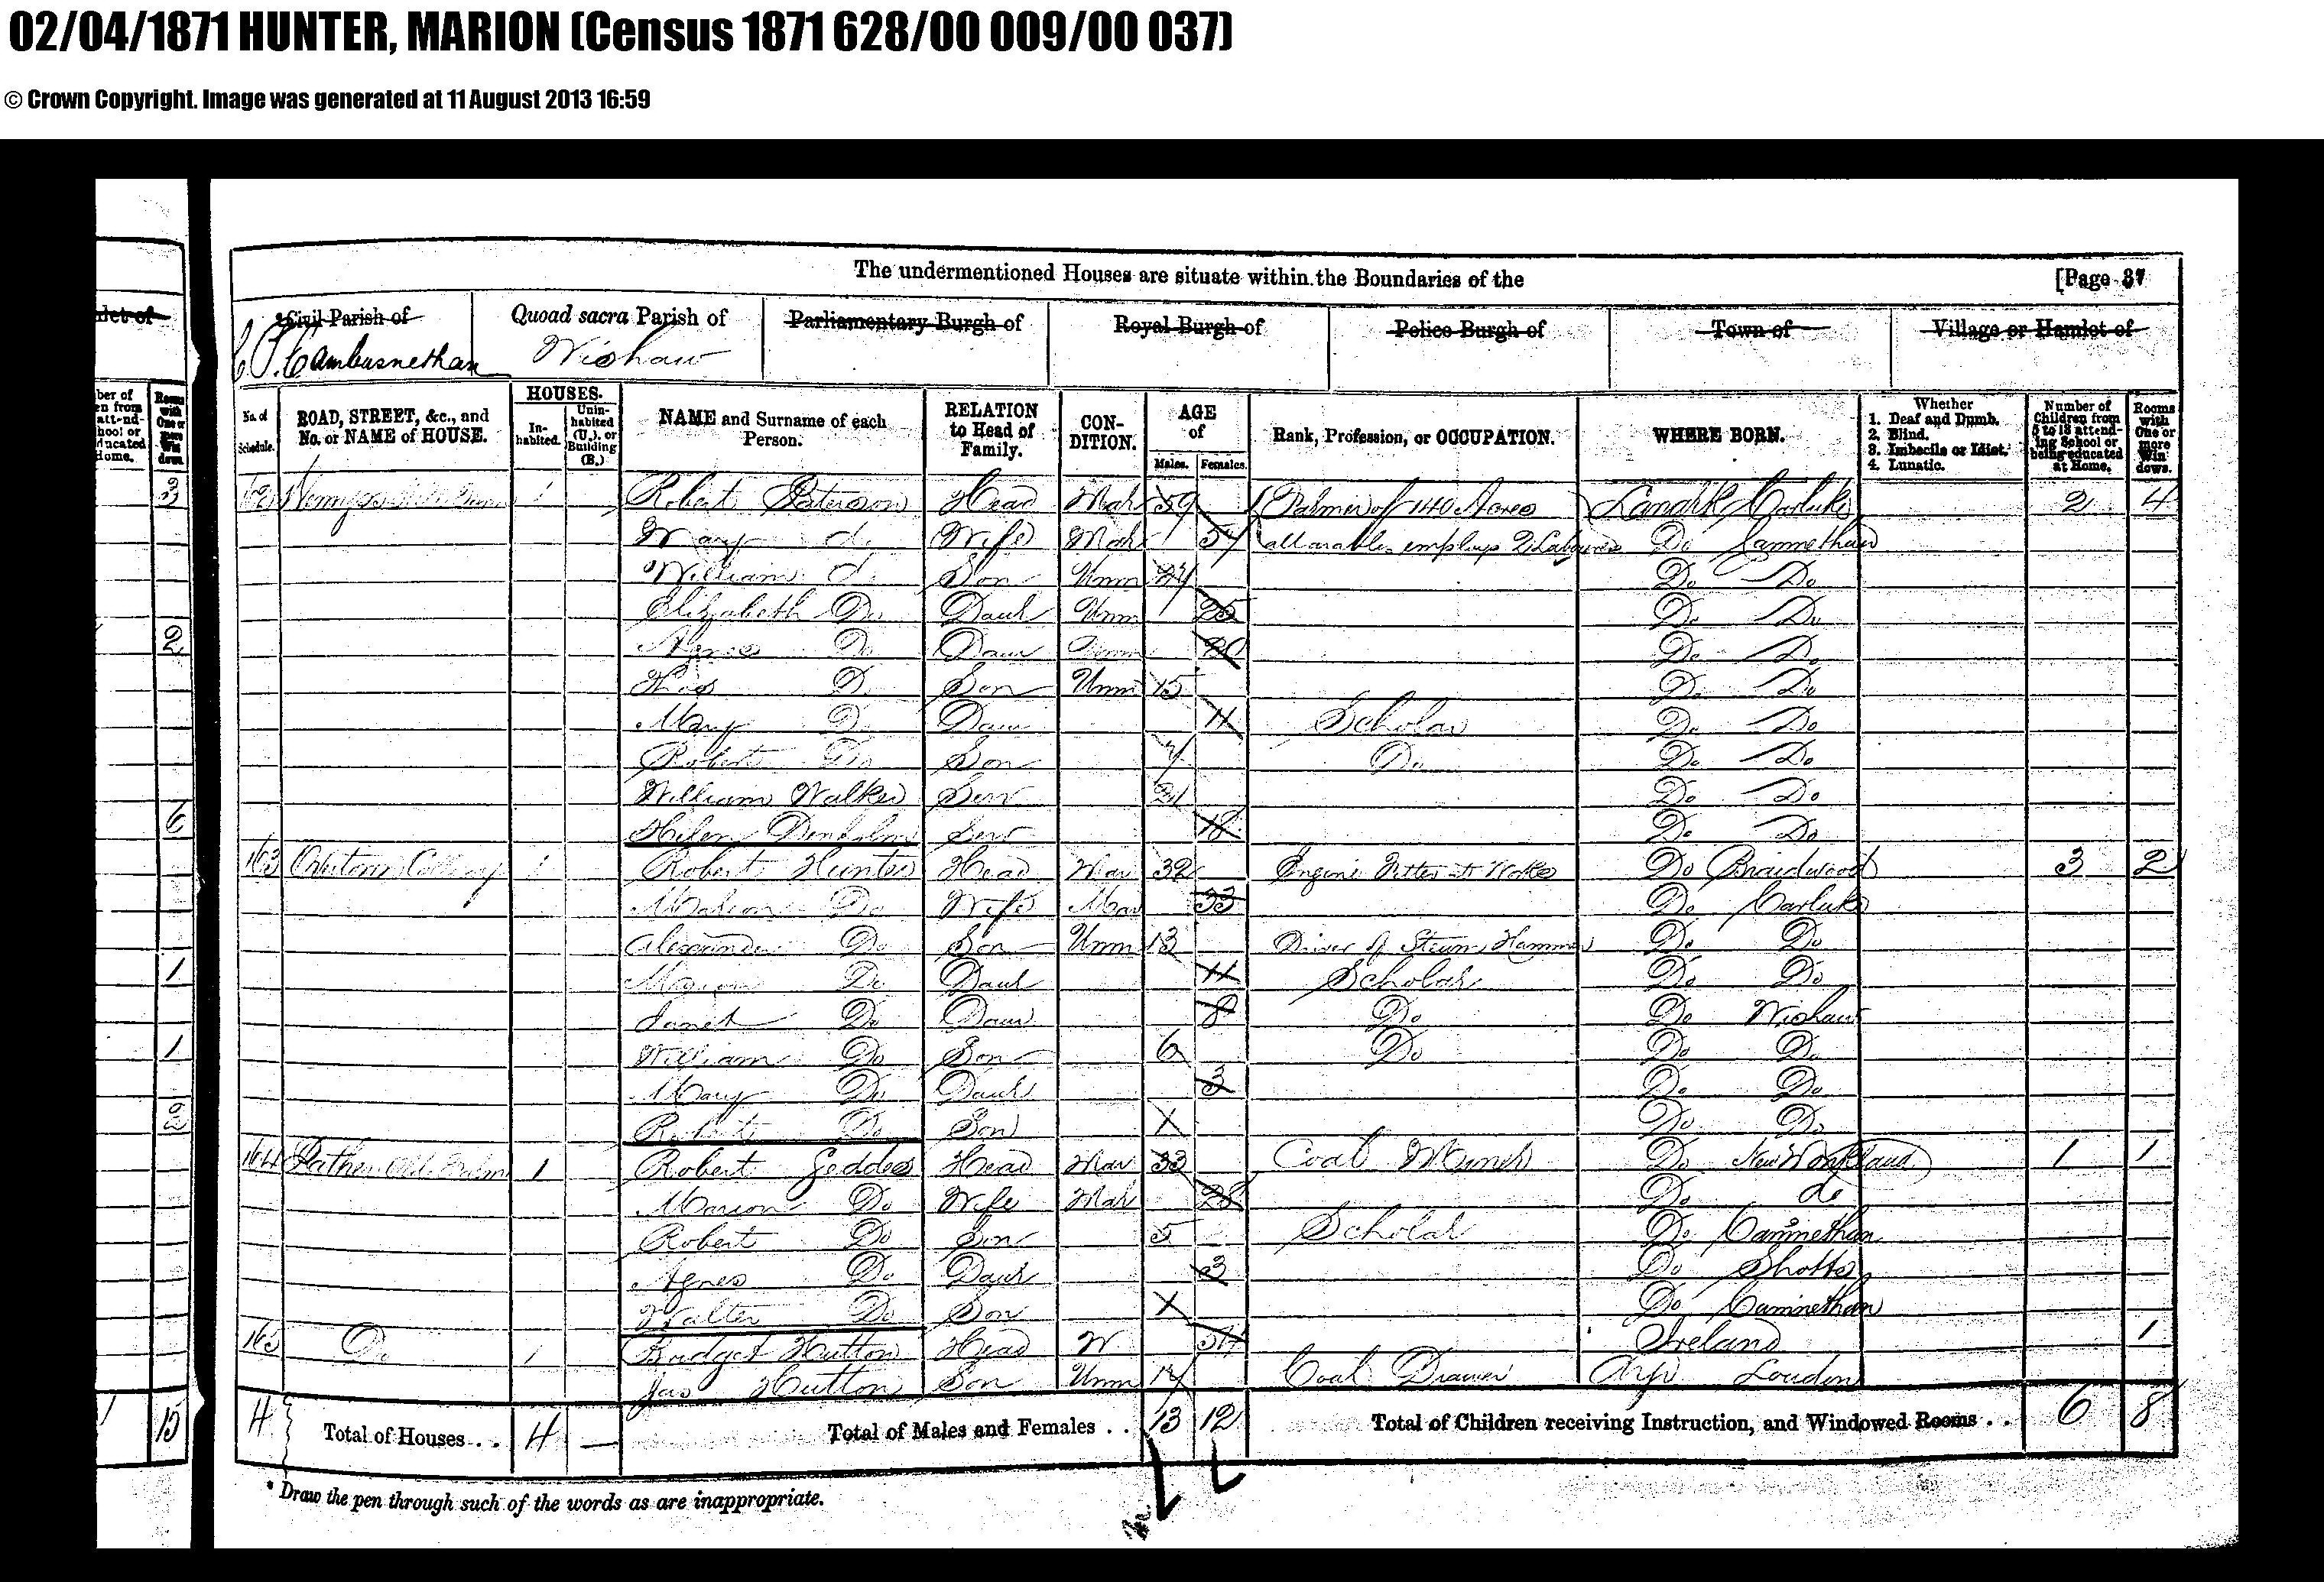 02/04/1871 HUNTER, MARION (Census 1871 628/00 009/00 037)
© Crown Copyright. Image was generated at 11 August 2013 16:59
The undermentioned Houses are situate within the Boundaries of the [Page 37
Civil Parish of Quoad sacra Parish of Parliamentary Burgh of Royal Burgh of Police Burgh of Town of Village or Hamlet of
Cambusnethan Wishaw
No. of Schedule. ROAD, STREET, &c., and No. or NAME of HOUSE. HOUSES. Inhabited. Uninhabited (U.), or Building (B.) NAME and Surname of each Person. RELATION to Head of Family. CONDITION. AGE of Males. Females. Rank, Profession, or OCCUPATION. WHERE BORN. Whether 1. Deaf and Dumb. 2. Blind. 3. Imbecile or Idiot. 4. Lunatic. Number of Children from 5 to 13 attending School or being educated at Home. Rooms with One or more Windows.
1 Robert Paterson Head Mar 59 Farmer of 140 Acres Lanark Carluke 2 4
Mary do Wife Mar all arable employs 2 Labourers Do Camnethan
William do Son Unm Do Do
Elizabeth Do Daur Unm 25 Do Do
Agnes Do Daur Unm Do Do
Thos D. Son Unm 15 Do Do
Mary D. Daur 11 Scholar Do Do
Robert Do Son 7 Do Do Do
William Walker Serv Do Do
Helen Denholm Serv 18 Do Do
163 Colliery 1 Robert Hunter Head Mar 32 Engine Fitter at Works Do Braidwood 3 2
Marion Do Wife Mar 33 Do Carluke
Alexander Do Son Unm 13 Driver of Steam Hammer Do Do
Marion Do Daur 11 Scholar Do Do
Janet Do Daur 8 Do Do Wishaw
William Do Son 6 Do Do Do
Mary Do Daur 3 Do Do
Robert Do Son Do Do
164 1 Robert Geddes Head Mar 33 Coal Miner Do New Monkland 1 1
Marion Do Wife Mar 28 Do do
Robert Do Son 5 Scholar Do Camnethan
Agnes Do Daur 3 Do Shotts
Walter Do Son Do Camnethan
165 Do 1 Bridget Hutton Head W. 54 Ireland 1
Jas Hutton Son Unm 17 Coal Drawer Ayr Loudon
4 Total of Houses . . 4 — Total of Males and Females . . 13 12 Total of Children receiving Instruction, and Windowed Rooms . . 6 8
* Draw the pen through such of the words as are inappropriate.